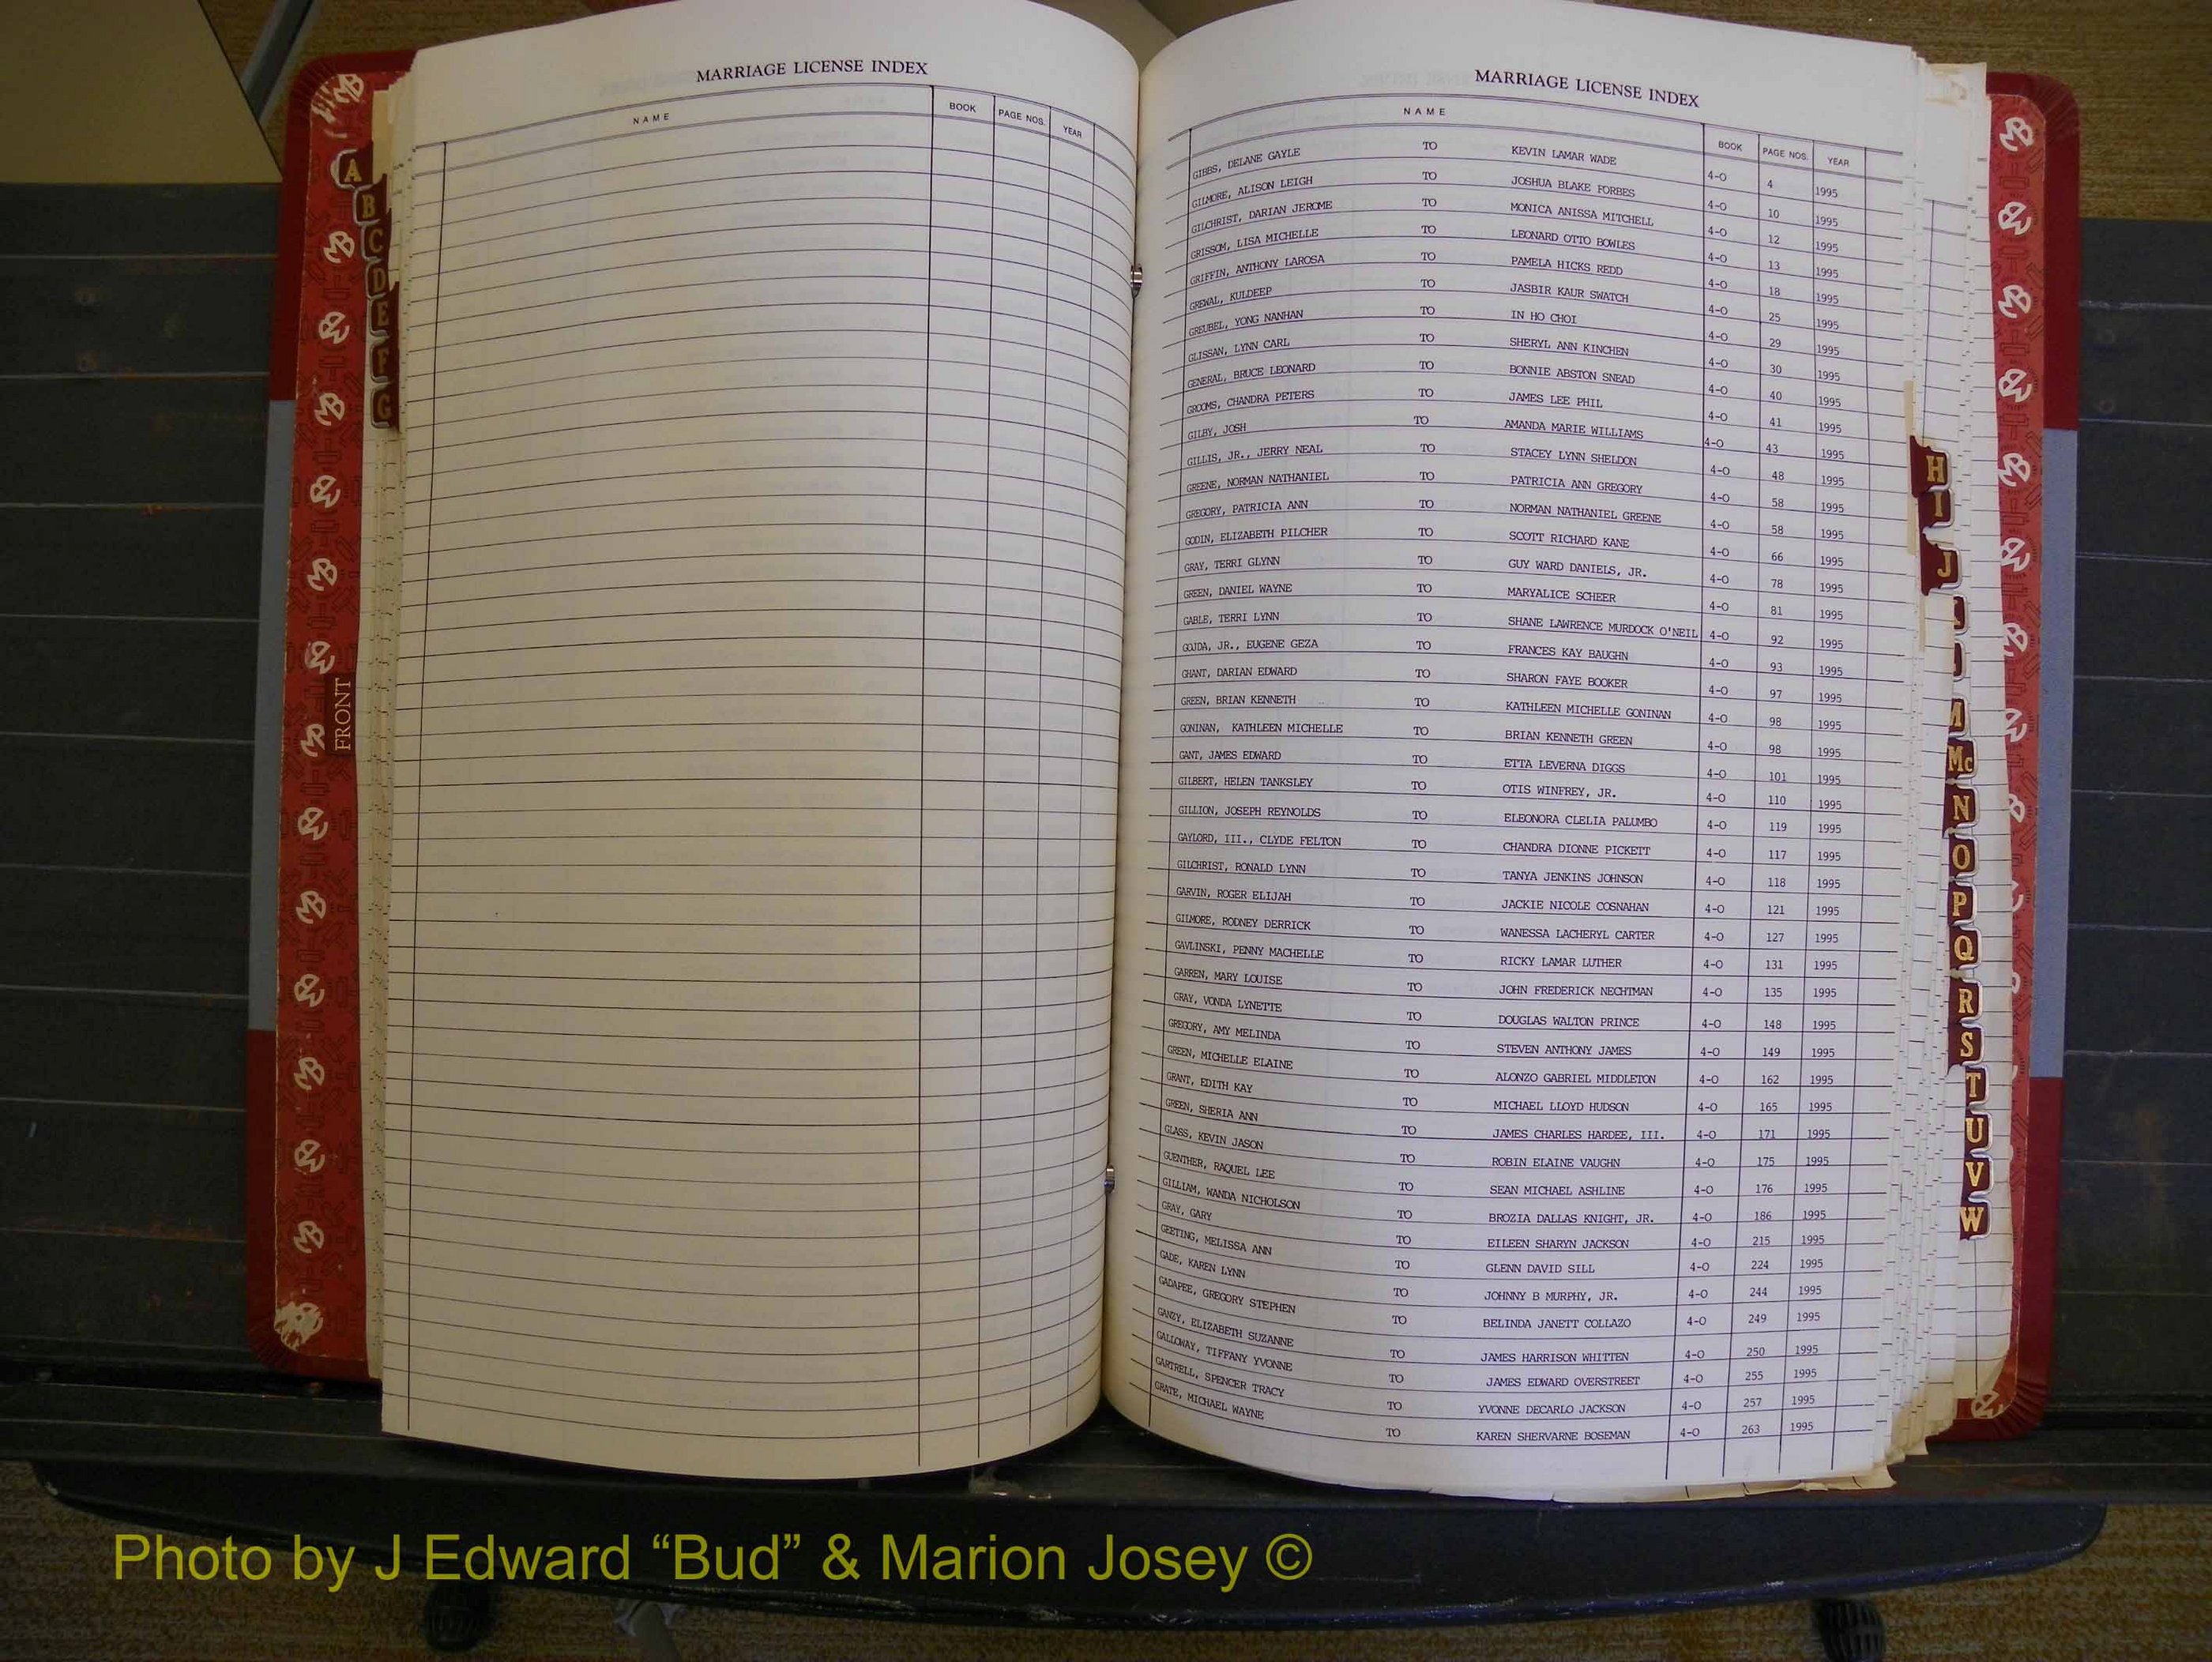 MARRIAGE LICENSE INDEX
NAME BOOK PAGE NOS. YEAR
A
B
C
D
E
F
G
FRONT
MARRIAGE LICENSE INDEX
NAME BOOK PAGE NOS. YEAR
GIBBS, DELANE GAYLE TO KEVIN LAMAR WADE 4-O 4 1995
GILMORE, ALISON LEIGH TO JOSHUA BLAKE FORBES 4-O 10 1995
GILCHRIST, DARIAN JEROME TO MONICA ANISSA MITCHELL 4-O 12 1995
GRISSOM, LISA MICHELLE TO LEONARD OTTO BOWLES 4-O 13 1995
GRIFFIN, ANTHONY LAROSA TO PAMELA HICKS REDD 4-O 18 1995
GREWAL, KULDEEP TO JASBIR KAUR SWATCH 4-O 25 1995
GREUBEL, YONG NANHAN TO IN HO CHOI 4-O 29 1995
GLISSAN, LYNN CARL TO SHERYL ANN KINCHEN 4-O 30 1995
GENERAL, BRUCE LEONARD TO BONNIE ABSTON SNEAD 4-O 40 1995
GROOMS, CHANDRA PETERS TO JAMES LEE PHIL 4-O 41 1995
GILBY, JOSH TO AMANDA MARIE WILLIAMS 4-O 43 1995
GILLIS, JR., JERRY NEAL TO STACEY LYNN SHELDON 4-O 48 1995
GREENE, NORMAN NATHANIEL TO PATRICIA ANN GREGORY 4-O 58 1995
GREGORY, PATRICIA ANN TO NORMAN NATHANIEL GREENE 4-O 58 1995
GODIN, ELIZABETH PILCHER TO SCOTT RICHARD KANE 4-O 66 1995
GRAY, TERRI GLYNN TO GUY WARD DANIELS, JR. 4-O 78 1995
GREEN, DANIEL WAYNE TO MARYALICE SCHEER 4-O 81 1995
GABLE, TERRI LYNN TO SHANE LAWRENCE MURDOCK O'NEIL 4-O 92 1995
GOJDA, JR., EUGENE GEZA TO FRANCES KAY BAUGHN 4-O 93 1995
GHANT, DARIAN EDWARD TO SHARON FAYE BOOKER 4-O 97 1995
GREEN, BRIAN KENNETH TO KATHLEEN MICHELLE GONINAN 4-O 98 1995
GONINAN, KATHLEEN MICHELLE TO BRIAN KENNETH GREEN 4-O 98 1995
GANT, JAMES EDWARD TO ETTA LEVERNA DIGGS 4-O 101 1995
GILBERT, HELEN TANKSLEY TO OTIS WINFREY, JR. 4-O 110 1995
GILLION, JOSEPH REYNOLDS TO ELEONORA CLELIA PALUMBO 4-O 119 1995
GAYLORD, III., CLYDE FELTON TO CHANDRA DIONNE PICKETT 4-O 117 1995
GILCHRIST, RONALD LYNN TO TANYA JENKINS JOHNSON 4-O 118 1995
GARVIN, ROGER ELIJAH TO JACKIE NICOLE COSNAHAN 4-O 121 1995
GILMORE, RODNEY DERRICK TO WANESSA LACHERYL CARTER 4-O 127 1995
GAVLINSKI, PENNY MACHELLE TO RICKY LAMAR LUTHER 4-O 131 1995
GARREN, MARY LOUISE TO JOHN FREDERICK NECHTMAN 4-O 135 1995
GRAY, VONDA LYNETTE TO DOUGLAS WALTON PRINCE 4-O 148 1995
GREGORY, AMY MELINDA TO STEVEN ANTHONY JAMES 4-O 149 1995
GREEN, MICHELLE ELAINE TO ALONZO GABRIEL MIDDLETON 4-O 162 1995
GRANT, EDITH KAY TO MICHAEL LLOYD HUDSON 4-O 165 1995
GREEN, SHERIA ANN TO JAMES CHARLES HARDEE, III. 4-O 171 1995
GLASS, KEVIN JASON TO ROBIN ELAINE VAUGHN 4-O 175 1995
GUENTHER, RAQUEL LEE TO SEAN MICHAEL ASHLINE 4-O 176 1995
GILLIAM, WANDA NICHOLSON TO BROZIA DALLAS KNIGHT, JR. 4-O 186 1995
GRAY, GARY TO EILEEN SHARYN JACKSON 4-O 215 1995
GEETING, MELISSA ANN TO GLENN DAVID SILL 4-O 224 1995
GADE, KAREN LYNN TO JOHNNY B MURPHY, JR. 4-O 244 1995
GADAPEE, GREGORY STEPHEN TO BELINDA JANETT COLLAZO 4-O 249 1995
GANZY, ELIZABETH SUZANNE TO JAMES HARRISON WHITTEN 4-O 250 1995
GALLOWAY, TIFFANY YVONNE TO JAMES EDWARD OVERSTREET 4-O 255 1995
GARTRELL, SPENCER TRACY TO YVONNE DECARLO JACKSON 4-O 257 1995
GRATE, MICHAEL WAYNE TO KAREN SHERVARNE BOSEMAN 4-O 263 1995
H
I
J
M
Mc
N
O
P
Q
R
S
T
U
V
W
Photo by J Edward “Bud” & Marion Josey ©